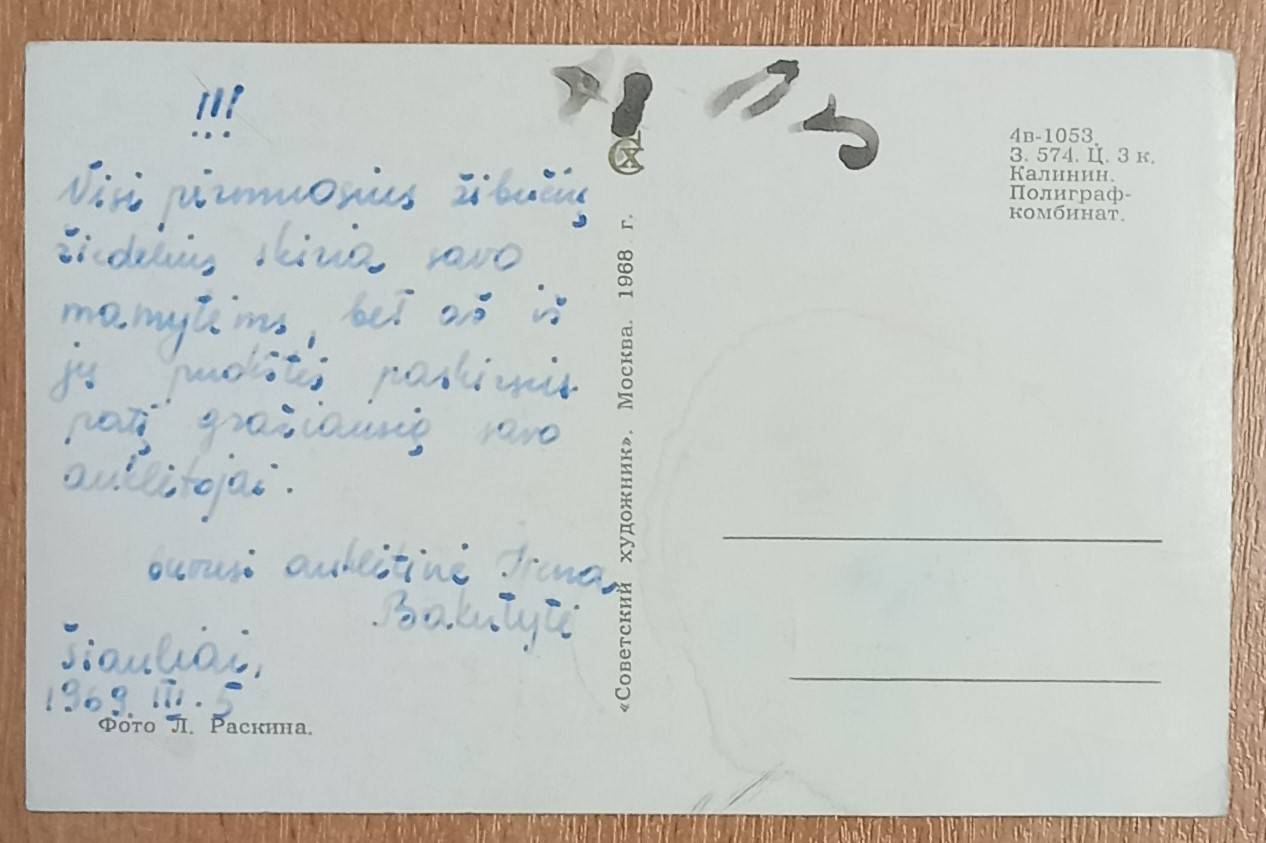 !!!
Visi pirmuosius žibučių
žiedelius skiria savo
mamytėms, bet aš iš
jų puokštės paskirsiu
patį gražiausią savo
auklėtojai.
buvusi auklėtinė Irena
Bakutytė
Šiauliai,
1969. III. 5
Фото Л. Раскина.
«Советский художник». Москва. 1968 г.
4в-1053.
З. 574. Ц. 3 к.
Калинин.
Полиграф-
комбинат.